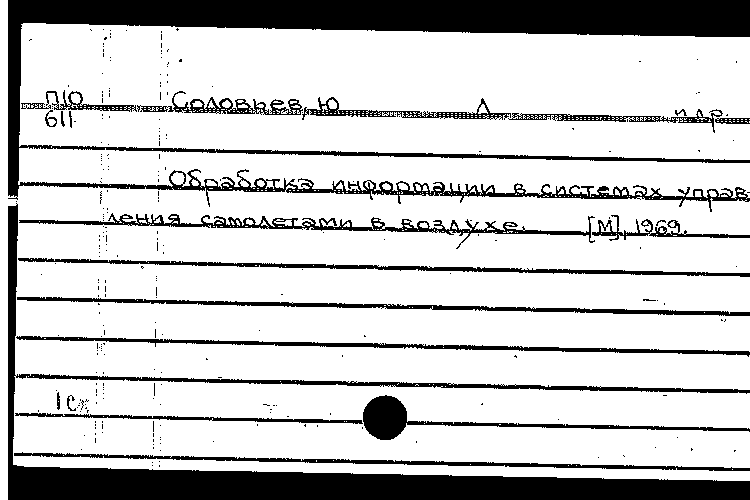 П10 Соловьев, Ю Л и др.
611
Обработка информации в системах управ
ления самолетами в воздухе. [М], 1969.
1 сж